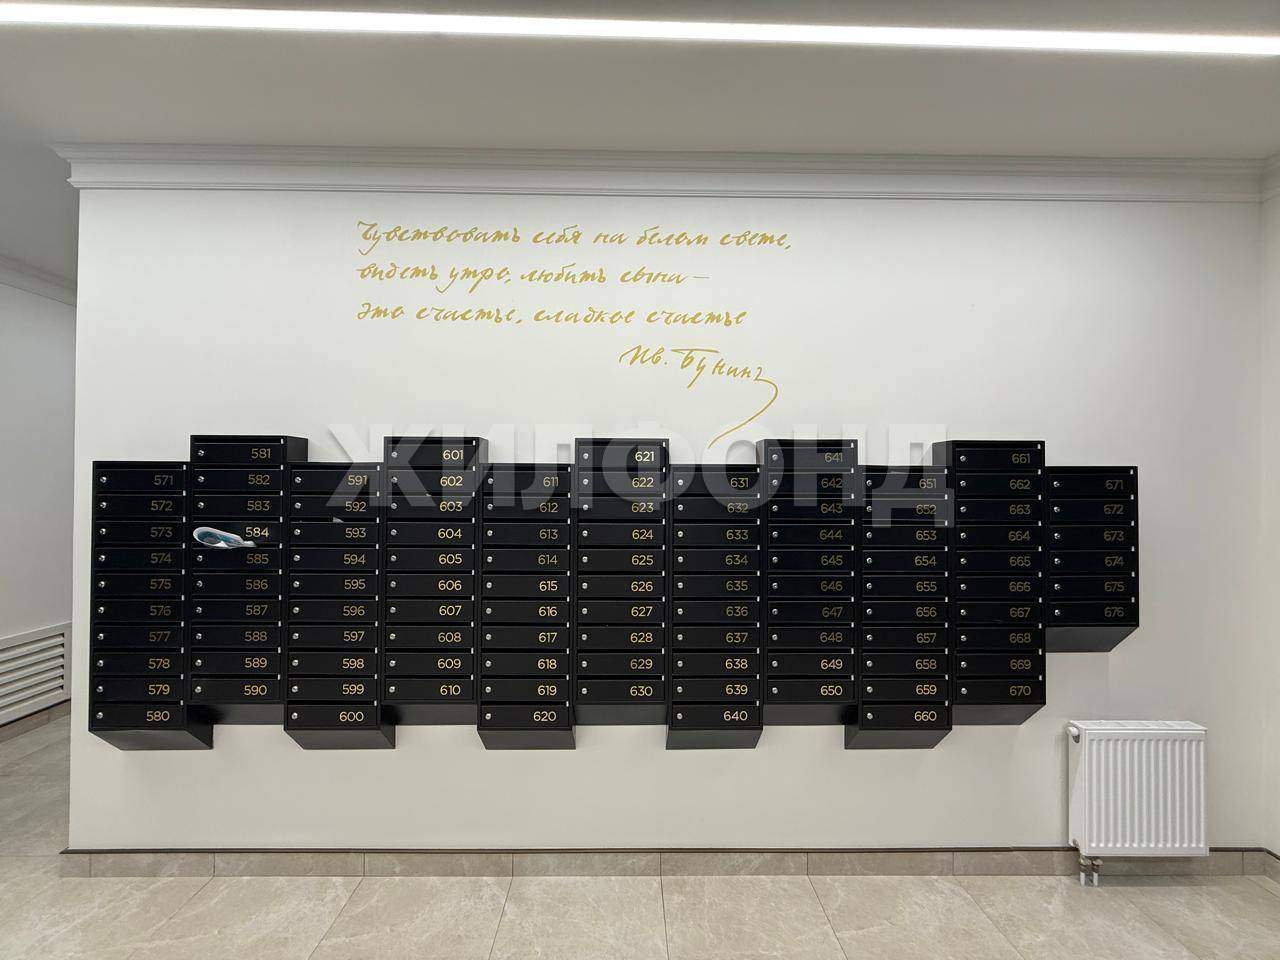 Чувствовать себя на белом свете,
видеть утро, любить сына –
это счастье, сладкое счастье
Ив. Бунинъ
ЖИЛФОНД
581 601 621 641 661
571 582 591 602 611 622 631 642 651 662 671
572 583 592 603 612 623 632 643 652 663 672
573 584 593 604 613 624 633 644 653 664 673
574 585 594 605 614 625 634 645 654 665 674
575 586 595 606 615 626 635 646 655 666 675
576 587 596 607 616 627 636 647 656 667 676
577 588 597 608 617 628 637 648 657 668
578 589 598 609 618 629 638 649 658 669
579 590 599 610 619 630 639 650 659 670
580 600 620 640 660